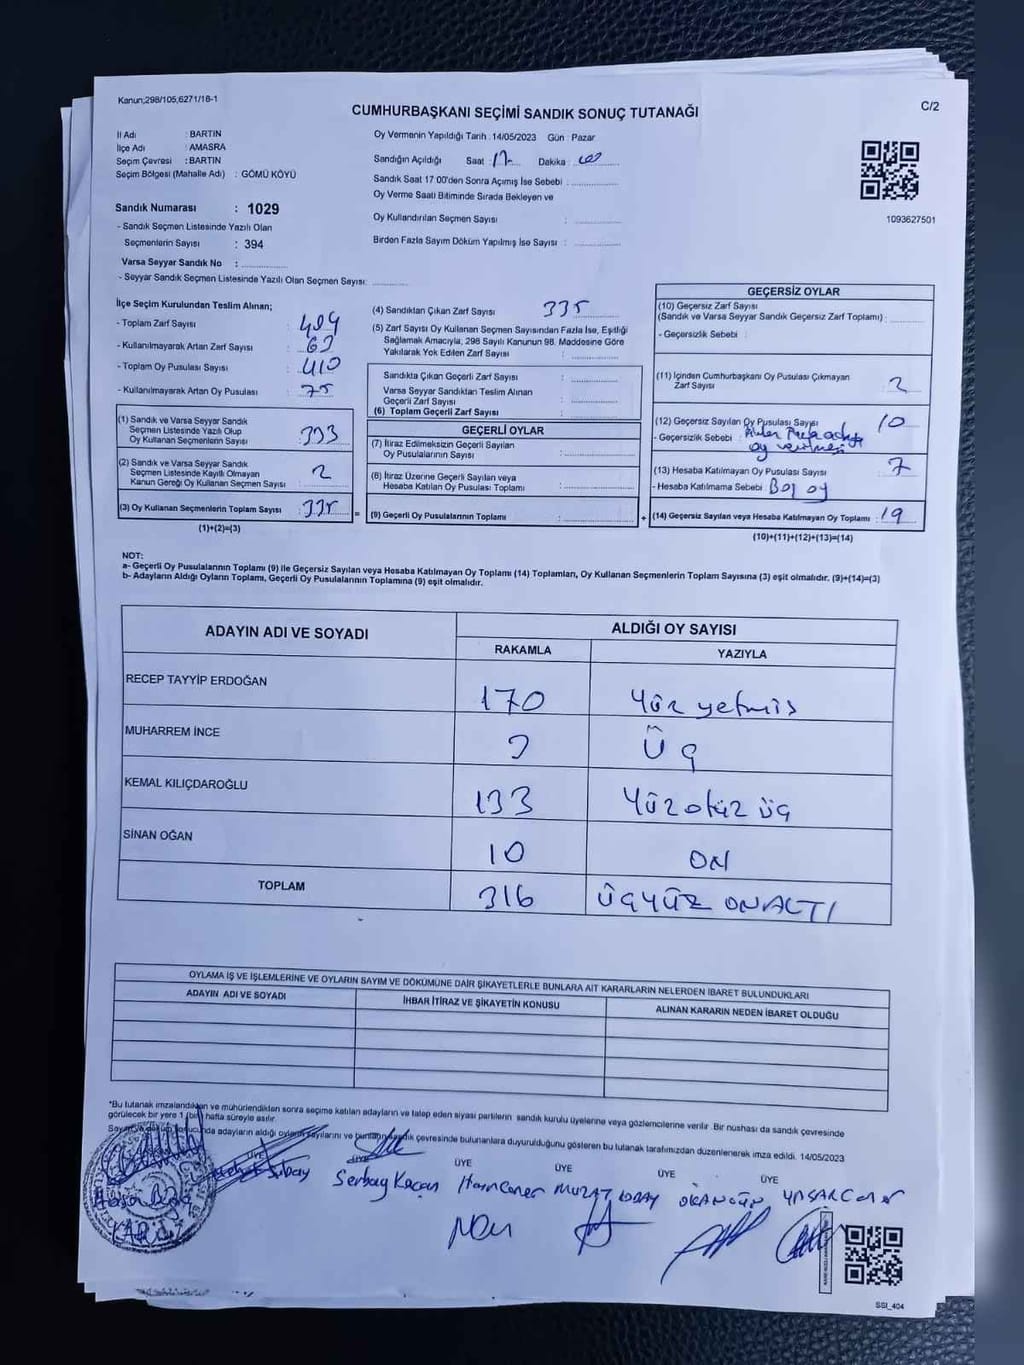 Kanun;298/105,6271/16-1
CUMHURBAŞKANI SEÇİMİ SANDIK SONUÇ TUTANAĞI
C/2
İl Adı : BARTIN
İlçe Adı : AMASRA
Seçim Çevresi : BARTIN
Seçim Bölgesi (Mahalle Adı) : GÖMÜ KÖYÜ
Sandık Numarası : 1029
- Sandık Seçmen Listesinde Yazılı Olan
Seçmenlerin Sayısı : 394
Varsa Seyyar Sandık No :
- Seyyar Sandık Seçmen Listesinde Yazılı Olan Seçmen Sayısı:
Oy Vermenin Yapıldığı Tarih : 14/05/2023 Gün : Pazar
Sandığın Açıldığı Saat : 17 Dakika : 00
Sandık Saat 17:00'den Sonra Açımış İse Sebebi :
Oy Verme Saati Bitiminde Sırada Bekleyen ve
Oy Kullandırılan Seçmen Sayısı :
Birden Fazla Sayım Döküm Yapılmış İse Sayısı :
1093627501
İlçe Seçim Kurulundan Teslim Alınan;
- Toplam Zarf Sayısı : 404
- Kullanılmayarak Artan Zarf Sayısı : 69
- Toplam Oy Pusulası Sayısı : 410
- Kullanılmayarak Artan Oy Pusulası : 75
(1) Sandık ve Varsa Seyyar Sandık
Seçmen Listesinde Yazılı Olup
Oy Kullanan Seçmenlerin Sayısı : 333
(2) Sandık ve Varsa Seyyar Sandık
Seçmen Listesinde Kayıtlı Olmayan
Kanun Gereği Oy Kullanan Seçmen Sayısı : 2
(3) Oy Kullanan Seçmenlerin Toplam Sayısı : 335
(1)+(2)=(3)
(4) Sandıktan Çıkan Zarf Sayısı : 335
(5) Zarf Sayısı Oy Kullanan Seçmen Sayısından Fazla İse, Eşitliği
Sağlamak Amacıyla, 298 Sayılı Kanunun 98. Maddesine Göre
Yakılarak Yok Edilen Zarf Sayısı :
Sandıkta Çıkan Geçerli Zarf Sayısı :
Varsa Seyyar Sandıkları Teslim Alınan
Geçerli Zarf Sayısı :
(6) Toplam Geçerli Zarf Sayısı :
GEÇERLİ OYLAR
(7) İtiraz Edilmeksizin Geçerli Sayılan
Oy Pusulalarının Sayısı :
(8) İtiraz Üzerine Geçerli Sayılan veya
Hesaba Katılan Oy Pusulası Toplamı :
= (9) Geçerli Oy Pusulalarının Toplamı : +
GEÇERSİZ OYLAR
(10) Geçersiz Zarf Sayısı
(Sandık ve Varsa Seyyar Sandık Geçersiz Zarf Toplamı) :
- Geçersizlik Sebebi :
(11) İçinden Cumhurbaşkanı Oy Pusulası Çıkmayan
Zarf Sayısı : 2
(12) Geçersiz Sayılan Oy Pusulası Sayısı : 10
- Geçersizlik Sebebi :
oy verilmesi
(13) Hesaba Katılmayan Oy Pusulası Sayısı : 7
- Hesaba Katılmama Sebebi : Boş oy
(14) Geçersiz Sayılan veya Hesaba Katılmayan Oy Toplamı : 19
(10)+(11)+(12)+(13)=(14)
NOT:
a- Geçerli Oy Pusulalarının Toplamı (9) ile Geçersiz Sayılan veya Hesaba Katılmayan Oy Toplamı (14) Toplamları, Oy Kullanan Seçmenlerin Toplam Sayısına (3) eşit olmalıdır. (9)+(14)=(3)
b- Adayların Aldığı Oyların Toplamı, Geçerli Oy Pusulalarının Toplamına (9) eşit olmalıdır.
ADAYIN ADI VE SOYADI ALDIĞI OY SAYISI
RAKAMLA YAZIYLA
RECEP TAYYİP ERDOĞAN 170 Yüz yetmiş
MUHARREM İNCE 3 Üç
KEMAL KILIÇDAROĞLU 133 Yüz otuz üç
SİNAN OĞAN 10 ON
TOPLAM 316 ÜÇYÜZ ONALTI
OYLAMA İŞ VE İŞLEMLERİNE VE OYLARIN SAYIM VE DÖKÜMÜNE DAİR ŞİKAYETLERLE BUNLARA AİT KARARLARIN NELERDEN İBARET BULUNDUKLARI
ADAYIN ADI VE SOYADI İHBAR İTİRAZ VE ŞİKAYETİN KONUSU ALINAN KARARIN NEDEN İBARET OLDUĞU
*Bu tutanak imzalandıktan ve mühürlendikten sonra seçime katılan adayların ve talep eden siyasi partilerin sandık kurulu üyelerine veya gözlemcilerine verilir. Bir nüshası da sandık çevresinde
görülecek bir yere 1 (bir) hafta süreyle asılır.
adayların aldığı oyların sayılarını ve bunların sandık çevresinde bulunanlara duyurulduğunu gösteren bu tutanak tarafımızdan düzenlenerek imza edildi. 14/05/2023
ÜYE ÜYE ÜYE ÜYE ÜYE
Serbay Koçan MURAT YAŞAR
SSI_404